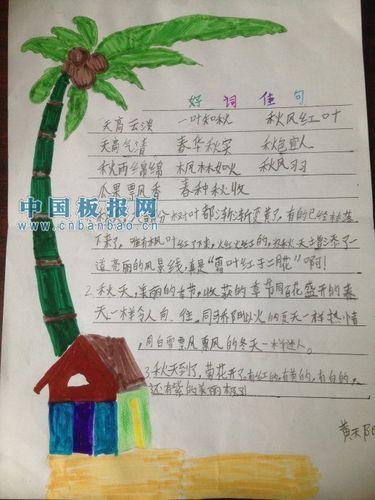 好词佳句
天高云淡 一叶知秋 秋风红叶
天高气清 春华秋实 秋色宜人
秋雨绵绵 枫林如火 秋风习习
瓜果飘香 春种秋收
中国板报网
www.cnbanbao.cn
部分树叶都渐渐变黄了,有的已经
下来了,唯枫叶红了起来,火红火红的,为秋天増添了一
道亮丽的风景线,真是“霜叶红于二月花”啊!
2.秋天,美丽的季节,收获的季节同百花盛开的春
天一样令人向往,同骄阳似火的夏天一样热情
,同白雪飘飘的冬天一样迷人。
3.秋天到了,菊花开了,有红的,有黄的,有白的,
还有紫的美丽极了